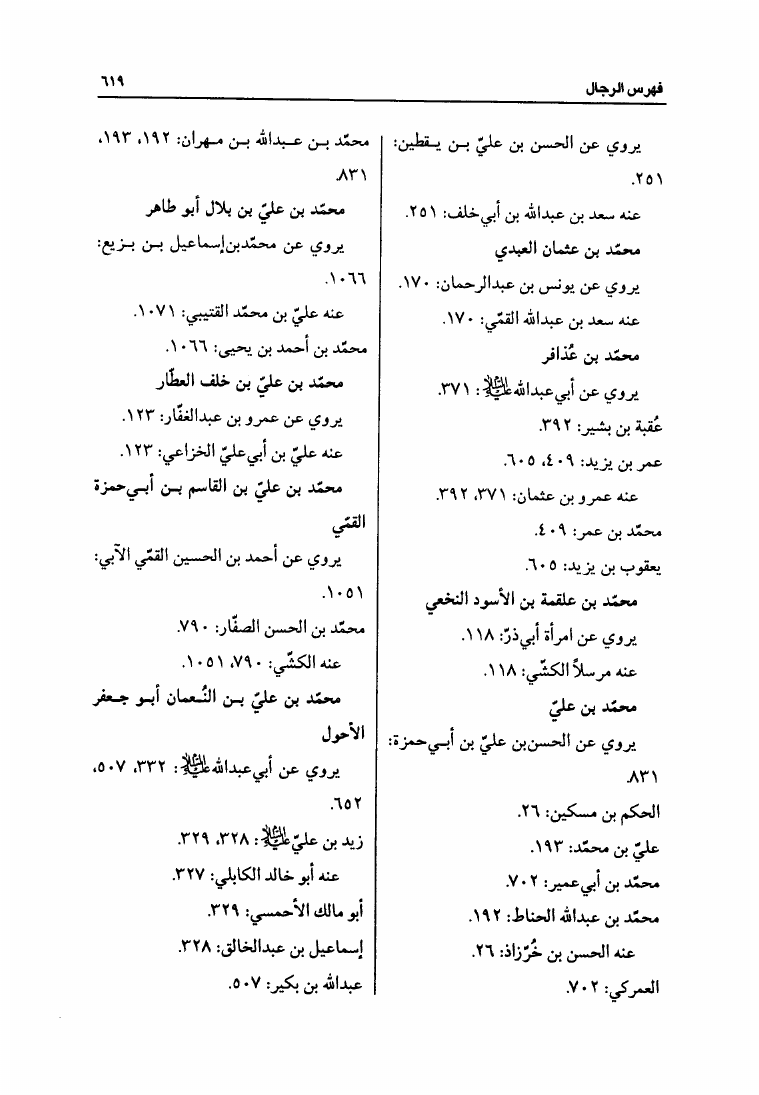 فهرس الرجال
٦١٩
يروي عن الحسن بن عليّ بـن يـقطين:
٢٥١.
عنه سعد بن عبدالله بن أبي‌خلف: ٢٥١.
محمّد بن عثمان العبدي
يروي عن يونس بن عبدالرحمان: ١٧٠.
عنه سعد بن عبدالله القمّي: ١٧٠.
محمّد بن عُذافر
يروي عن أبي‌عبدالله عليه السلام: ٣٧١.
عُقبة بن بشير: ٣٩٢.
عمر بن يزيد: ٤٠٩، ٦٠٥.
عنه عمرو بن عثمان: ٣٧١، ٣٩٢.
محمّد بن عمر: ٤٠٩.
يعقوب بن يزيد: ٦٠٥.
محمّد بن علقمة بن الأسود النخعي
يروي عن امرأة أبي‌ذرّ: ١١٨.
عنه مرسلاً الكشّي: ١١٨.
محمّد بن عليّ
يروي عن الحسن‌بن عليّ بن أبـي‌حمزة:
٨٣١.
الحكم بن مسكين: ٢٦.
عليّ بن محمّد: ١٩٣.
محمّد بن أبي‌عمير: ٧٠٢.
محمّد بن عبدالله الحناط: ١٩٢.
عنه الحسن بن خُرّزاذ: ٢٦.
العمركي: ٧٠٢.
محمّد بـن عـبدالله بـن مـهران: ١٩٢، ١٩٣،
٨٣١.
محمّد بن عليّ بن بلال أبو طاهر
يروي عن محمّدبن‌إسماعيل بـن بـزيع:
١٠٦٦.
عنه عليّ بن محمّد القتيبي: ١٠٧١.
محمّد بن أحمد بن يحيى: ١٠٦٦.
محمّد بن عليّ بن خلف العطّار
يروي عن عمرو بن عبدالغفّار: ١٢٣.
عنه عليّ بن أبي‌عليّ الخزاعي: ١٢٣.
محمّد بن عليّ بن القاسم بـن أبـي‌حمزة
القمّي
يروي عن أحمد بن الحسين القمّي الآبي:
١٠٥١.
محمّد بن الحسن الصفّار: ٧٩٠.
عنه الكشّي: ٧٩٠، ١٠٥١.
محمّد بن عليّ بـن النُـعمان أبـو جـعفر
الأحول
يروي عن أبي‌عبدالله عليه السلام: ٣٣٢، ٥٠٧،
٦٥٢.
زيد بن عليّ عليه السلام: ٣٢٨، ٣٢٩.
عنه أبو خالد الكابلي: ٣٢٧.
أبو مالك الأحمسي: ٣٢٩.
إسماعيل بن عبدالخالق: ٣٢٨.
عبدالله بن بكير: ٥٠٧.